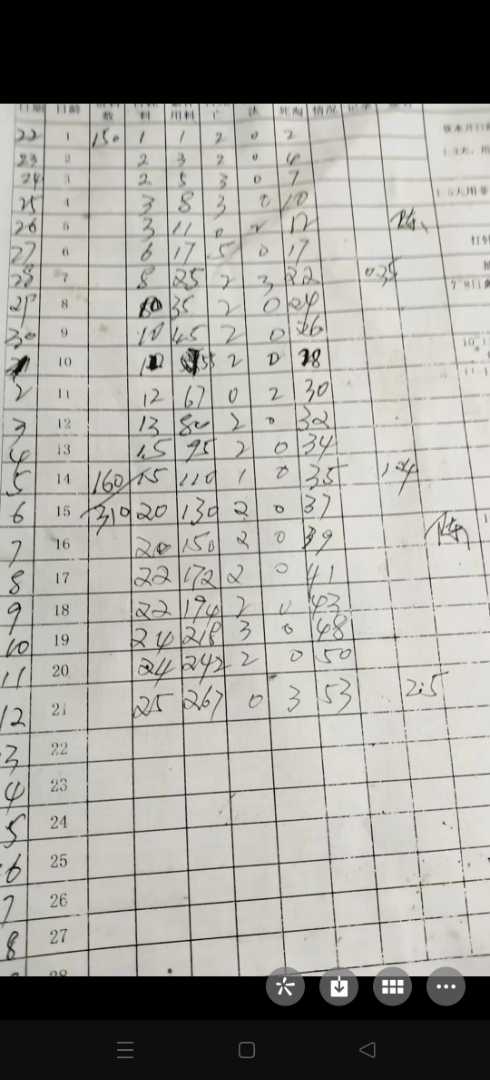 日期 日龄 数 料 用料 亡 汰 死淘 情况 记录
22 1 150 1 1 2 0 2
23 2 2 3 2 0 4
24 3 2 5 3 0 7
25 4 3 8 3 0 10
26 5 3 11 0 2 12
27 6 6 17 5 0 17
28 7 8 25 2 3 22 035
29 8 10 35 2 0 24
30 9 10 45 2 0 26
10 2 0 28
2 11 12 67 0 2 30
3 12 13 80 2 0 32
4 13 15 95 2 0 34
5 14 160 15 110 1 0 35 1.04
6 15 310 20 130 2 0 37
7 16 20 150 2 0 39
8 17 22 172 2 0 41
9 18 22 194 2 0 43
10 19 24 218 3 0 48
11 20 24 242 2 0 50
12 21 25 267 0 3 53 2.5
3 22
4 23
5 24
6 25
7 26
8 27
28